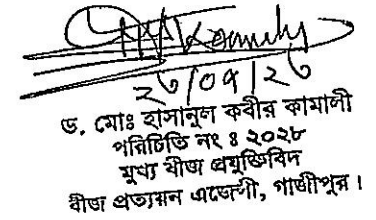 ২৩/০৭/২৩
ড. মোঃ হাসানুল কবীর কামালী
পরিচিতি নং ঃ ২০২৮
মুখ্য বীজ প্রযুক্তিবিদ
বীজ প্রত্যয়ন এজেন্সী, গাজীপুর।